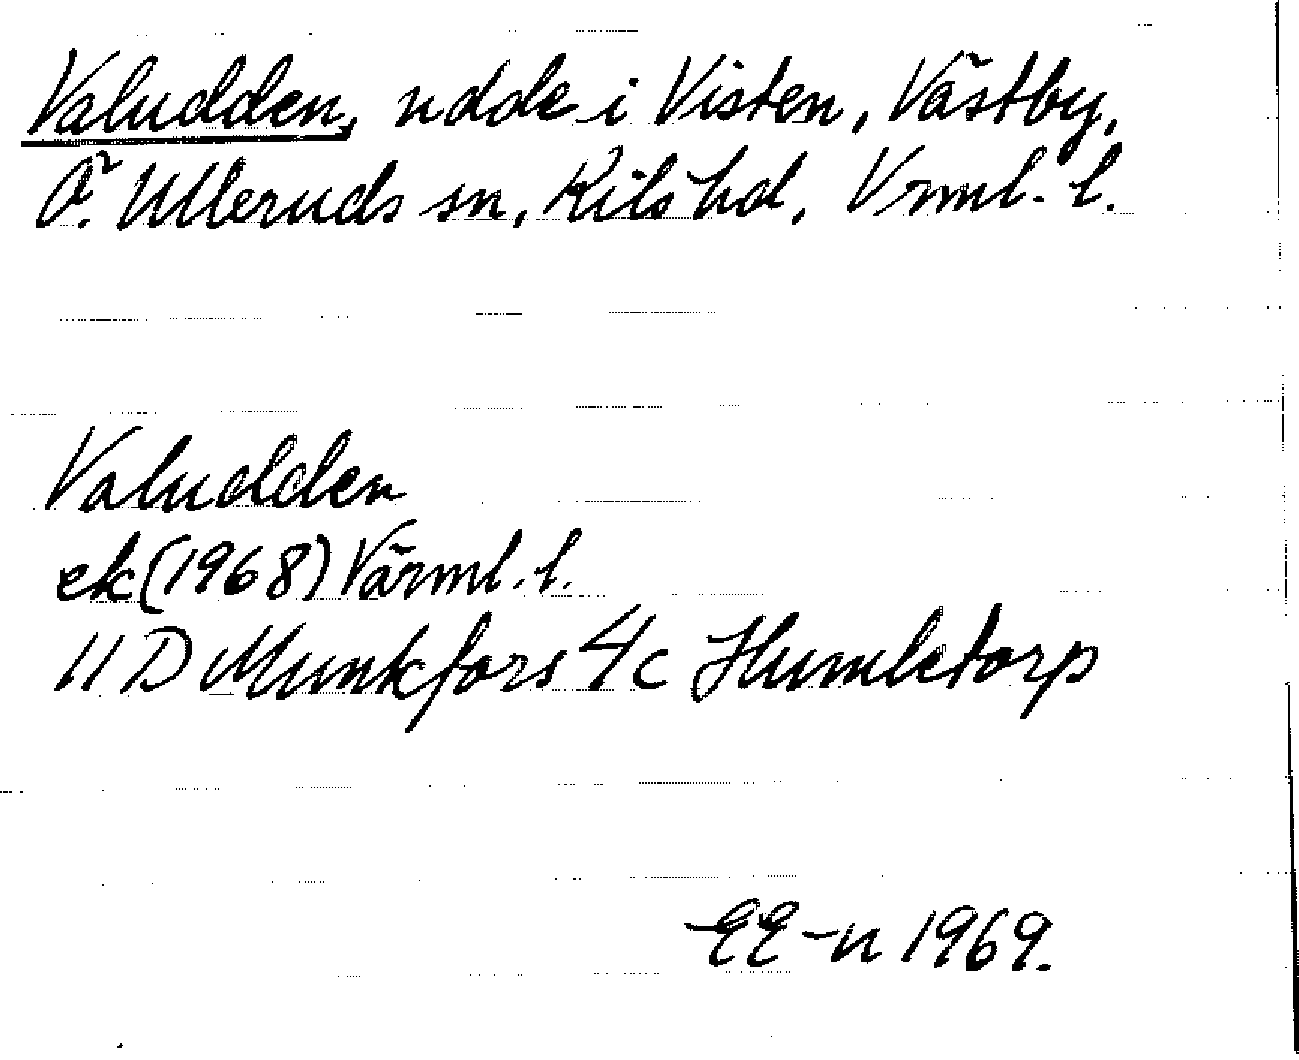 Valudden, udde i Visten, Västby,
Ö. Ulleruds sn, Kils hd, Vrml. l.
Valudden
ek (1968) Värml. l.
11 D Munkfors 4c Humletorp
EE-n 1969.